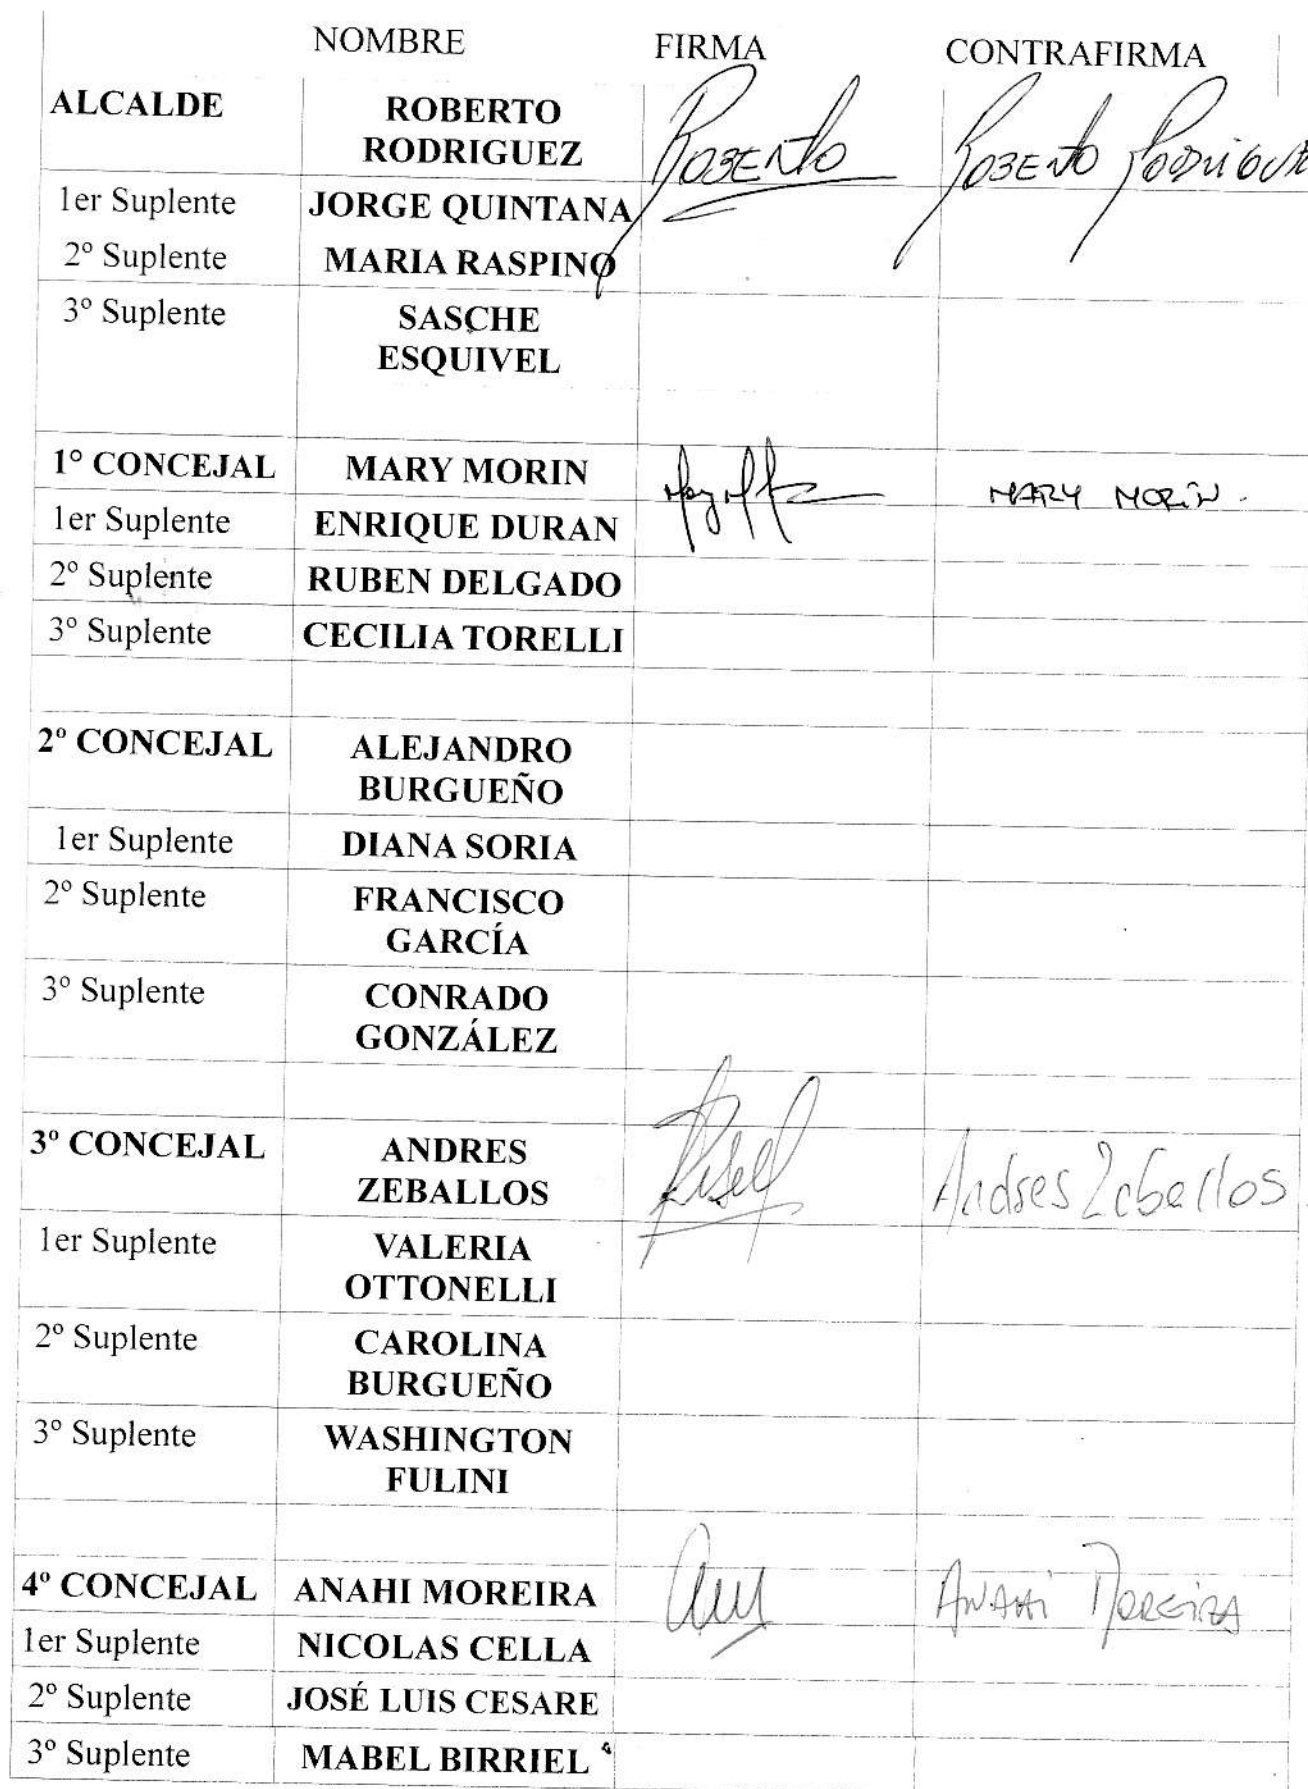 NOMBRE FIRMA CONTRAFIRMA
ALCALDE ROBERTO
RODRIGUEZ Roberto Roberto Rodriguez
1er Suplente JORGE QUINTANA
2º Suplente MARIA RASPINO
3º Suplente SASCHE
ESQUIVEL
1º CONCEJAL MARY MORIN MARY MORIN.
1er Suplente ENRIQUE DURAN
2º Suplente RUBEN DELGADO
3º Suplente CECILIA TORELLI
2º CONCEJAL ALEJANDRO
BURGUEÑO
1er Suplente DIANA SORIA
2º Suplente FRANCISCO
GARCÍA
3º Suplente CONRADO
GONZÁLEZ
3º CONCEJAL ANDRES
ZEBALLOS Andres Zeballos
1er Suplente VALERIA
OTTONELLI
2º Suplente CAROLINA
BURGUEÑO
3º Suplente WASHINGTON
FULINI
4º CONCEJAL ANAHI MOREIRA ANAHI MOREIRA
1er Suplente NICOLAS CELLA
2º Suplente JOSÉ LUIS CESARE
3º Suplente MABEL BIRRIEL